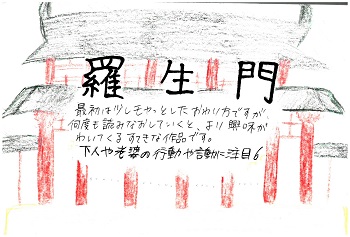 羅生門
最初は少しモヤっとしたおわり方ですが、
何度も読みなおしていくと、より興味が
わいてくるすてきな作品です。
下人や老婆の行動や言動に注目6